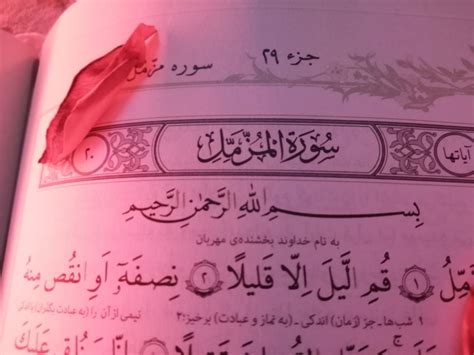 جزء ۲۹ سوره مزمل
آیاتها سُورَةُ المُزَّمِّل ۲۰
بِسْمِ اللهِ الرَّحْمٰنِ الرَّحِیمِ
به نام خداوند بخشنده‌ی مهربان
مِّلُ ۱ قُمِ الَّیلَ اِلّا قَلیلًا ۲ نِصفَهٓ اَوِ انقُص مِنهُ
۱ شب‌ها ـ جز (زمان) اندکی ـ (به نماز و عبادت) برخیز؛۲ نیمی از آن را (به عبادت بگذران) یا اندکی
عَلَیكَ